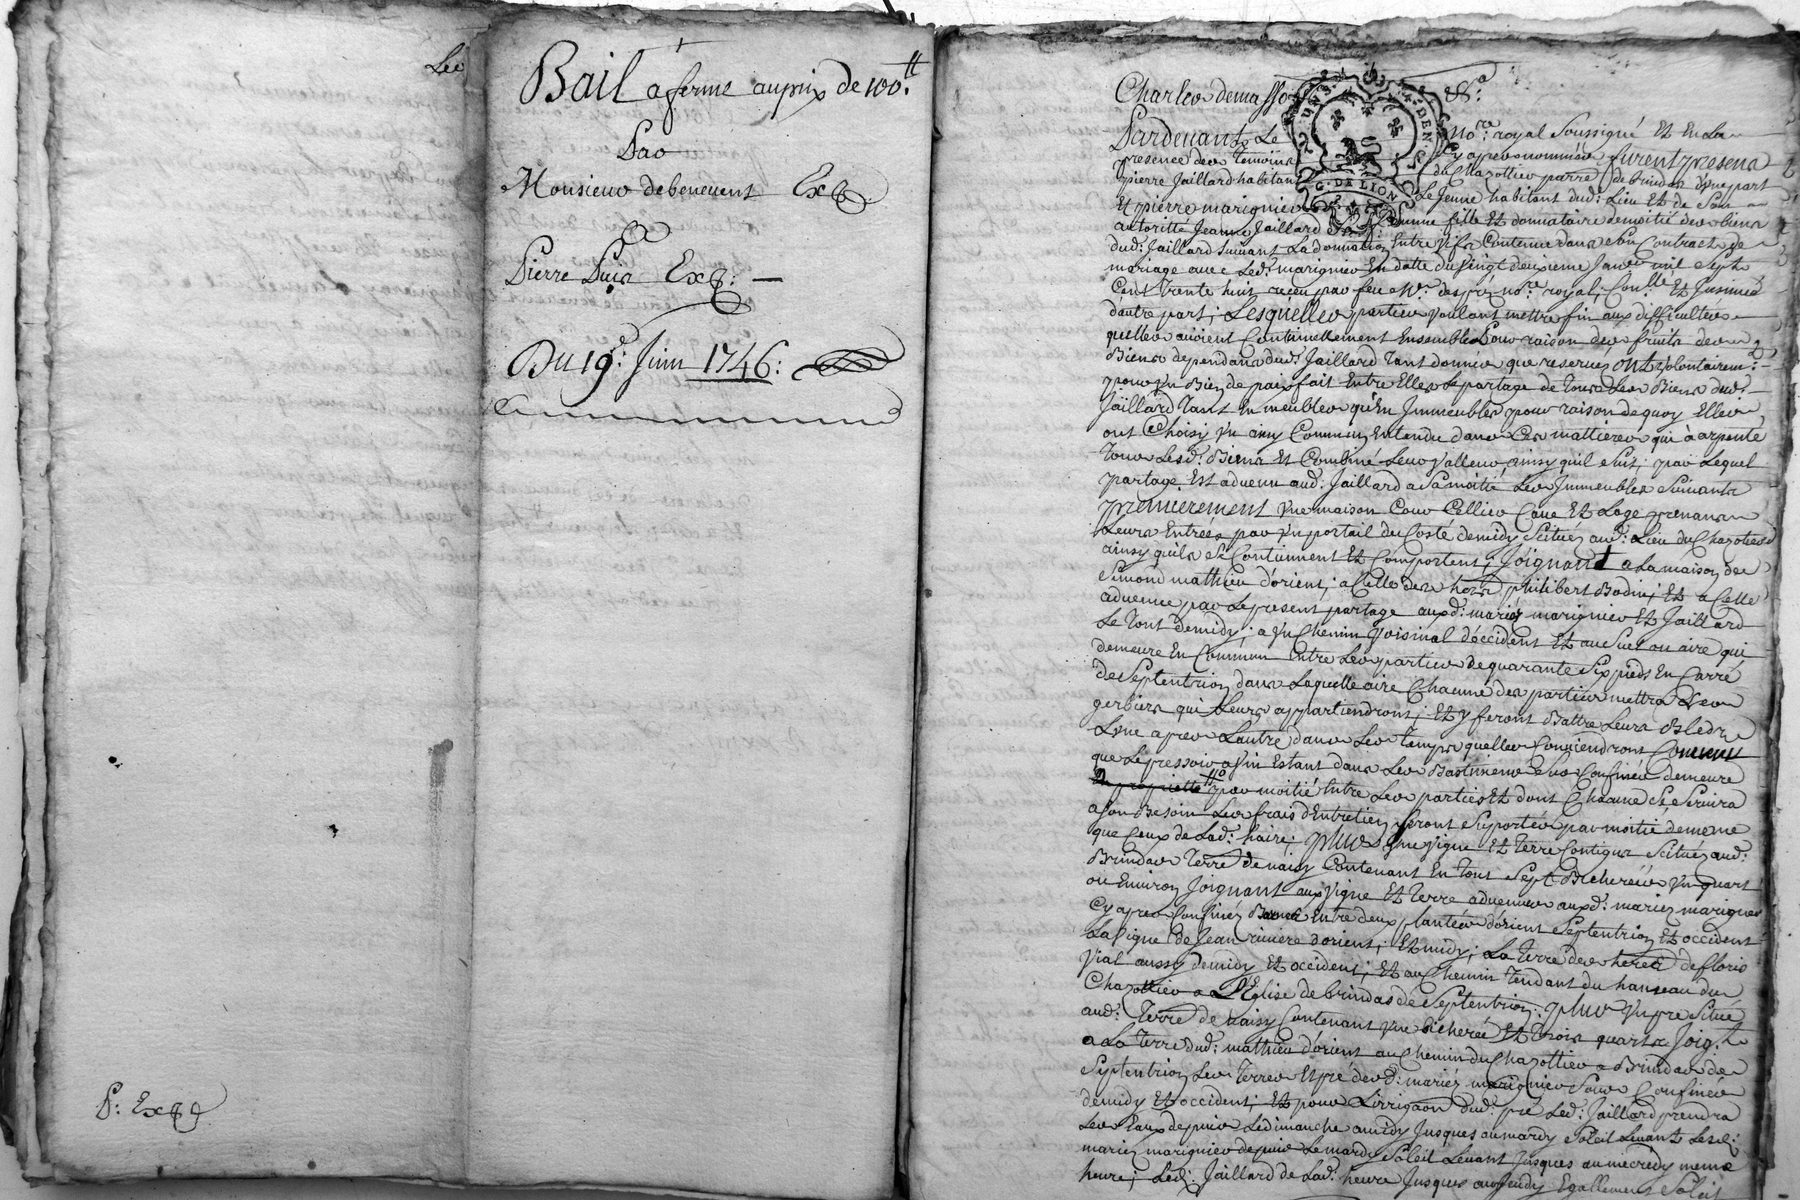 Leo
Bail a ferme au prix de 100.tt
Par
Monsieur debenevent Exp
a
Pierre Puis Exp: —
Du 19e: Juin 1746:
P: Exp
Charles demasso
Pardevant Le no.re royal Soussigné Et En La
presence des temoins Cy apres nommés furent presens
pierre Jaillard habitant du Chazottier parre de brindas d'une part
Et pierre marignier Le Jeune habitant dud: Lieu Et de Son
autorité Jeanne Jaillard sa femme fille Et donnataire de moitié des biens
dud: Jaillard Suivant La donnation Entre vifs Contenue dans Son Contract de
mariage avec Led: marignier En datte du vingt deuxieme Janvier mil Sept
Cent trente huit receu par feu Me. no.re royal, Con.llé Et Insinué
d'autre part; Lesquelles parties voulant mettre fin aux difficultés
quelles avoient Continuellement Ensembles Pour raison des fruits des
Biens dependans dud: Jaillard tant donnés que reservés ont volontairem.t
pour un Bien de paix fait Entre Elles Le partage de tous Les Biens dud:
Jaillard tant En meubles qu'En Immeubles pour raison de quoy Elles
ont Choisy un amy Commun Entendu dans Ces mattieres qui à arpenté
tous Lesd: Biens Et Combiné Leur valleur, ainsy quil Suit; par Lequel
partage Est advenu aud: Jaillard a Sa moitié Les Immeubles Suivants
premierement Une maison Cour Cellier Cave Et Loge prenans
Leurs Entrées par un portail du Costé de midy Scitués aud: Lieu du Chazottier
ainsy quils Se Contiennent Et Comportent; Joignant a La maison de
Simond mathieu d'orient; a Celle des hoirs philibert Bodin; Et a Celle
advenue par Le present partage auxd: mariez marignier Et Jaillard
Le tout de midy; a un Chemin voisinal d'occident Et au Suel ou aire qui
demeure En Commun Entre Les parties de quarante Six pieds En Carré
de Septentrion dans Laquelle aire Chacune des parties mettra Les
gerbiers qui Leurs appartiendront; Et y feront Battre Leurs Bleds
L'une apres L'autre dans Les temps quelles Conviendront Comme
que Le pressoir a vin Estant dans Les Bastiments Sus Confinés demeure
par moitié Entre Les parties Et dont Chacune Se Servira
a Son Besoin Les frais d'Entretien Seront Suportés par moitié de meme
que Ceux de Lad: haire; plus Une vigne Et terre Contigus Scitués aud:
Brindas terre de naisy Contenant En tout Sept Bicherées Un quart
ou Environ Joignant aux vigne Et terre advenues auxd: mariez marignier
Cy apres Confinés Entre deux plantées d'orient Septentrion Et occident
La vigne de Jean riviere d'orient; Et midy; La terre des heres de floris
vial aussy de midy Et occident; Et au Chemin tendant du hameau du
Chazottier a L'Eglise de brindas de Septentrion. plus Un pre Situé
aud: terre de naisy Contenant Une bicherée Et trois quarts Joig.t
a La terre dud: mathieu d'orient au Chemin du Chazottier a Brindas de
Septentrion Les terres Et pré desd: mariez marignier Sous Confinés
de midy Et occident; Et pour L'irrigaon dud: pré Led: Jaillard prendra
Les Eaux depuis Le dimanche a midy Jusques au mardy Soleil Levant Lesd:
mariez marignier depuis Le mardy Soleil Levant Jusques au mecredy meme
heure, Led: Jaillard de Lad: heure Jusques au Jeudy Egallement Soleil